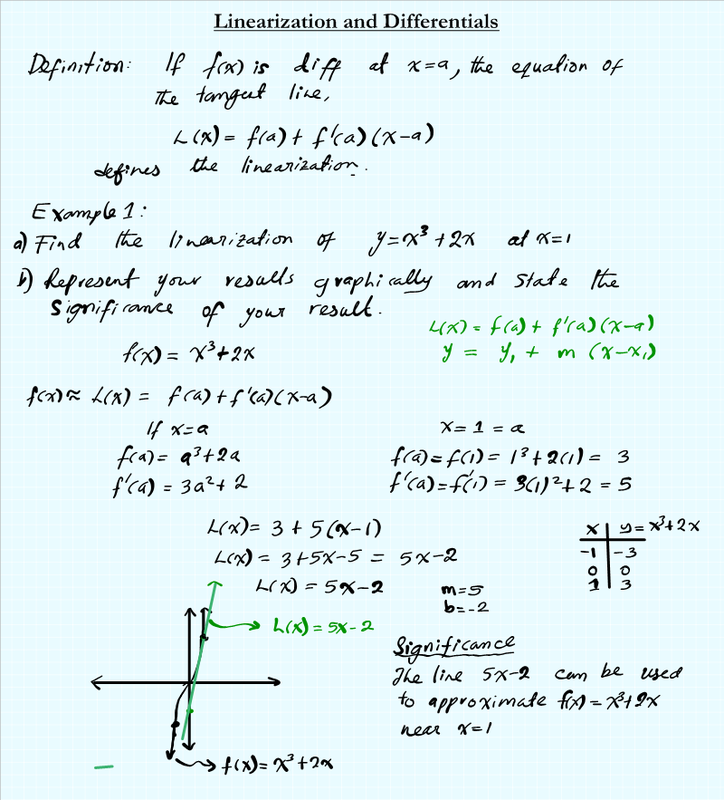 Linearization and Differentials
Definition: If f(x) is diff at x=a, the equation of
the tangent line,
L(x) = f(a) + f'(a) (x-a)
defines the linearization.
Example 1:
a) Find the linearization of y=x³+2x at x=1
b) Represent your results graphically and state the
Significance of your result.
L(x) = f(a) + f'(a) (x-a)
y = y₁ + m (x-x₁)
f(x) = x³+2x
f(x) ≈ L(x) = f(a) + f'(a)(x-a)
If x=a
f(a) = a³+2a
f'(a) = 3a²+2
x = 1 = a
f(a) = f(1) = 1³+2(1) = 3
f'(a) = f'(1) = 3(1)²+2 = 5
L(x) = 3 + 5(x-1)
L(x) = 3+5x-5 = 5x-2
L(x) = 5x-2
m=5
b=-2
x | y=x³+2x
-1 | -3
0 | 0
1 | 3
L(x) = 5x-2
f(x) = x³+2x
Significance
The line 5x-2 can be used
to approximate f(x) = x³+2x
near x=1